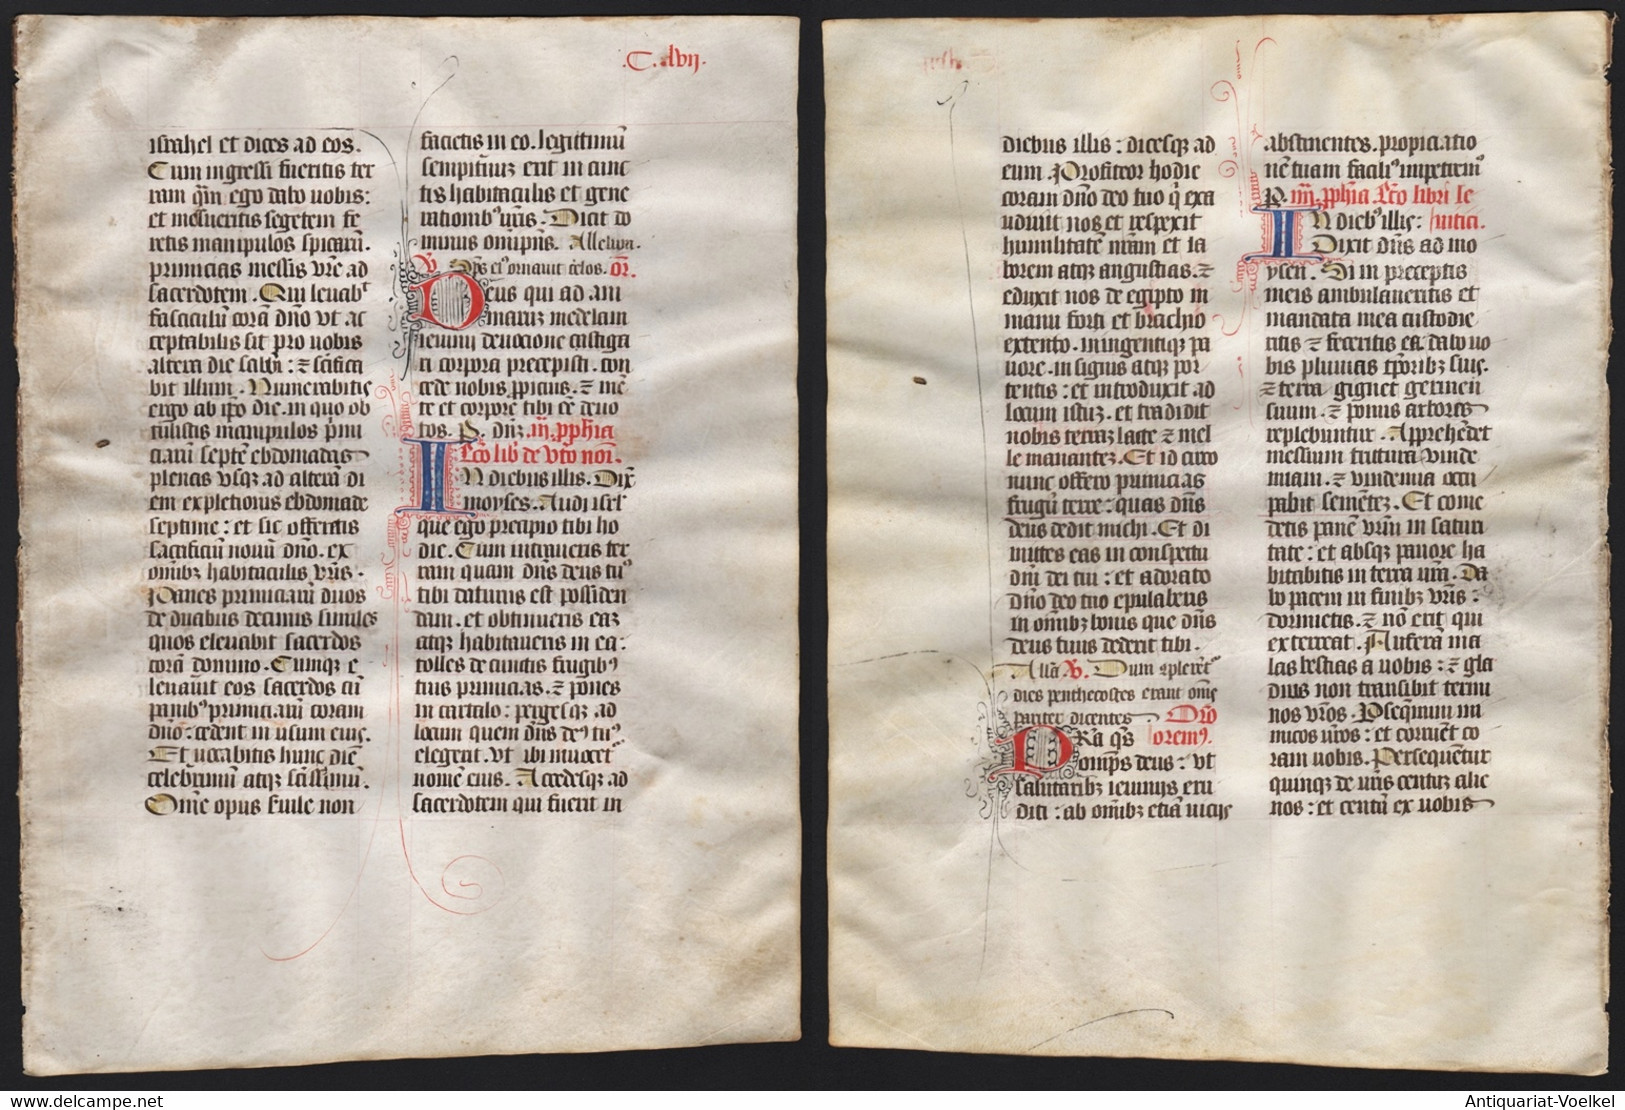 .C. lvij.
israhel et dices ad eos.
Cum ingressi fueritis ter
ram qm̄ ego dabo vobis:
et messueritis segetem fe
retis manipulos spicarū.
primicias messis vr̄e ad
sacerdotem. Qui leuabꝰ
fasciculū corā dn̄o vt ac
ceptabilis sit pro vobis
altera die sabbi: ⁊ sc̄ifica
bit illum. Numerabitis
ergo ab ip̄o die. in quo ob
tulistis manipulos p̄mi
ciarū septē ebdomadas
plenas vsqꝫ ad alterā di
em expletionis ebdomade
septime: et sic offeretis
sacrificiū nouū dn̄o. ex
om̄ibꝫ habitaculis vr̄is.
Panes primiciarū duos
de duabus decimis similes
quos eleuabit sacerdos
corā domino. Cumqꝫ e
leuauit eos sacerdos cū
panibꝰ primiciarū coram
dn̄o: cedent in usum eius.
Et uocabitis hunc diē
celeberrimū atqꝫ sc̄issimū.
Om̄e opus seruile non
facietis in eo. legittimū
sempit̄nuꝫ erit in cunc
tis habitaculis et gene
rationibꝰ vr̄is. Dicit do
minus om̄ipn̄s. Alleluya.
V̄ Sp̄s eiꝰ ornauit celos. or̄.
Deus qui ad ani
maruꝫ medelam
ieiunij deuocione castiga
ri corpora precepisti. con
cede nobis ꝓpicius. ⁊ mē
te et corpore tibi eē deuo
tos. P. dn̄ꝫ. iij. ꝓph̄ia
Lc̄o lib̄ deuto nōi.
In diebus illis. Dix̄
moyses. Audi isrl̄
que ego precipio tibi ho
die. Cum intraueris ter
ram quam dn̄s deus tuꝰ
tibi daturus est possiden
dam. et obtinueris eaꝫ
atqꝫ habitaueris in ea:
tolles de cunctis frugibꝰ
tuis primicias. ⁊ pones
in cartalo: pergesqꝫ ad
locum quem dn̄s deꝰ tuꝰ
elegerit. vt ibi inuocetꝰ
nomē eius. Accedesqꝫ ad
sacerdotem qui fuerit in
diebus illis: dicesqꝫ ad
eum. Profiteor hodie
coram dn̄o deo tuo qͥ exa
udiuit nos et respexit
humilitatē nr̄am et la
borem atqꝫ angustias. ⁊
eduxit nos de egipto in
manu forti et brachio
extento. in ingentiqꝫ pa
uore. in signis atqꝫ por
tentis: et introduxit ad
locum istuꝫ. et tradidit
nobis terraꝫ lacte ⁊ mel
le mananteꝫ. Et id circo
nunc offero primicias
frugū terre: quas dn̄s
deus dedit michi. Et di
mittes eas in conspectu
dn̄i dei tui: et adorato
dn̄o deo tuo epulaberis
in om̄ibꝫ bonis que dn̄s
deus tuus dederit tibi.
All̄a V̄. Dum cplerent̄
dies penthecostes erant om̄s
pariter dicentes Or̄o
Pr̄a qs̄ oremꝰ.
om̄ps deus: vt
salutaribꝫ ieiunijs eru
diti: ab om̄ibꝫ etiā uicijs
abstinentes. propiciatio
nē tuam faciliꝰ impetremꝰ
P. iiij. ꝓph̄ia Lc̄o libri le
In diebꝰ illis: uitici.
Dixit dn̄s ad mo
ysen. Si in preceptis
meis ambulaueritis et
mandata mea custodie
ritis ⁊ feceritis ea. dabo uo
bis pluuias tp̄oribꝫ suis.
⁊ terra gignet germen
suum. ⁊ pomis arbores
replebuntur. Apprehēdet
messium tritura vinde
miam. ⁊ vindemia occu
pabit semēteꝫ. Et come
detis panē vr̄m in saturi
tate: et absqꝫ pauore ha
bitabitis in terra ur̄a. Da
bo pacem in finibꝫ vr̄is:
dormietis. ⁊ nō erit qui
exterreat. Auferā ma
las bestias a uobis: ⁊ gla
dius non transibit termi
nos vr̄os. Pseqmini ini
micos ur̄os: et corruēt co
ram uobis. Persequentur
quinqꝫ de ur̄is centuꝫ alie
nos: et centū ex uobis
www.delcampe.net
Antiquariat-Voelkel